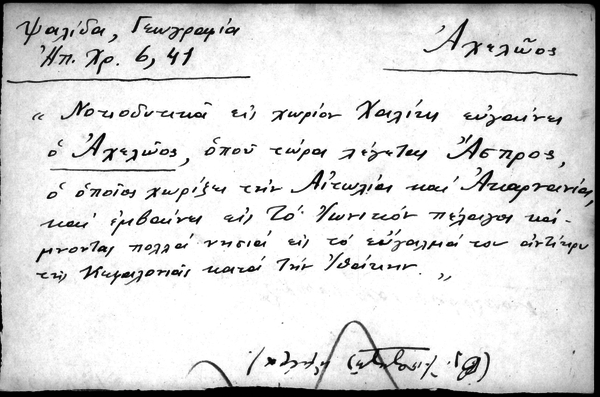 Ψαλίδα, Γεωγραφία
Ἠπ. Χρ. 6, 41
Ἀχελῶος
« Νοτιοδυτικά εἰς χωρίον Χαλίκι εὐγαίνει
ὁ Ἀχελῶος, ὁπού τώρα λέγεται Ἄσπρος,
ὁ ὁποῖος χωρίζει τήν Αἰτωλίαν καί Ἀκαρνανίαν,
καί ἐμβαίνει εἰς τό Ἰωνικόν πέλαγος κά-
μνοντας πολλά νησιά εἰς τό εὔγαλμά του ἀντίκρυ
τῆς Κεφαλονιᾶς κατά τήν Ἰθάκην. »